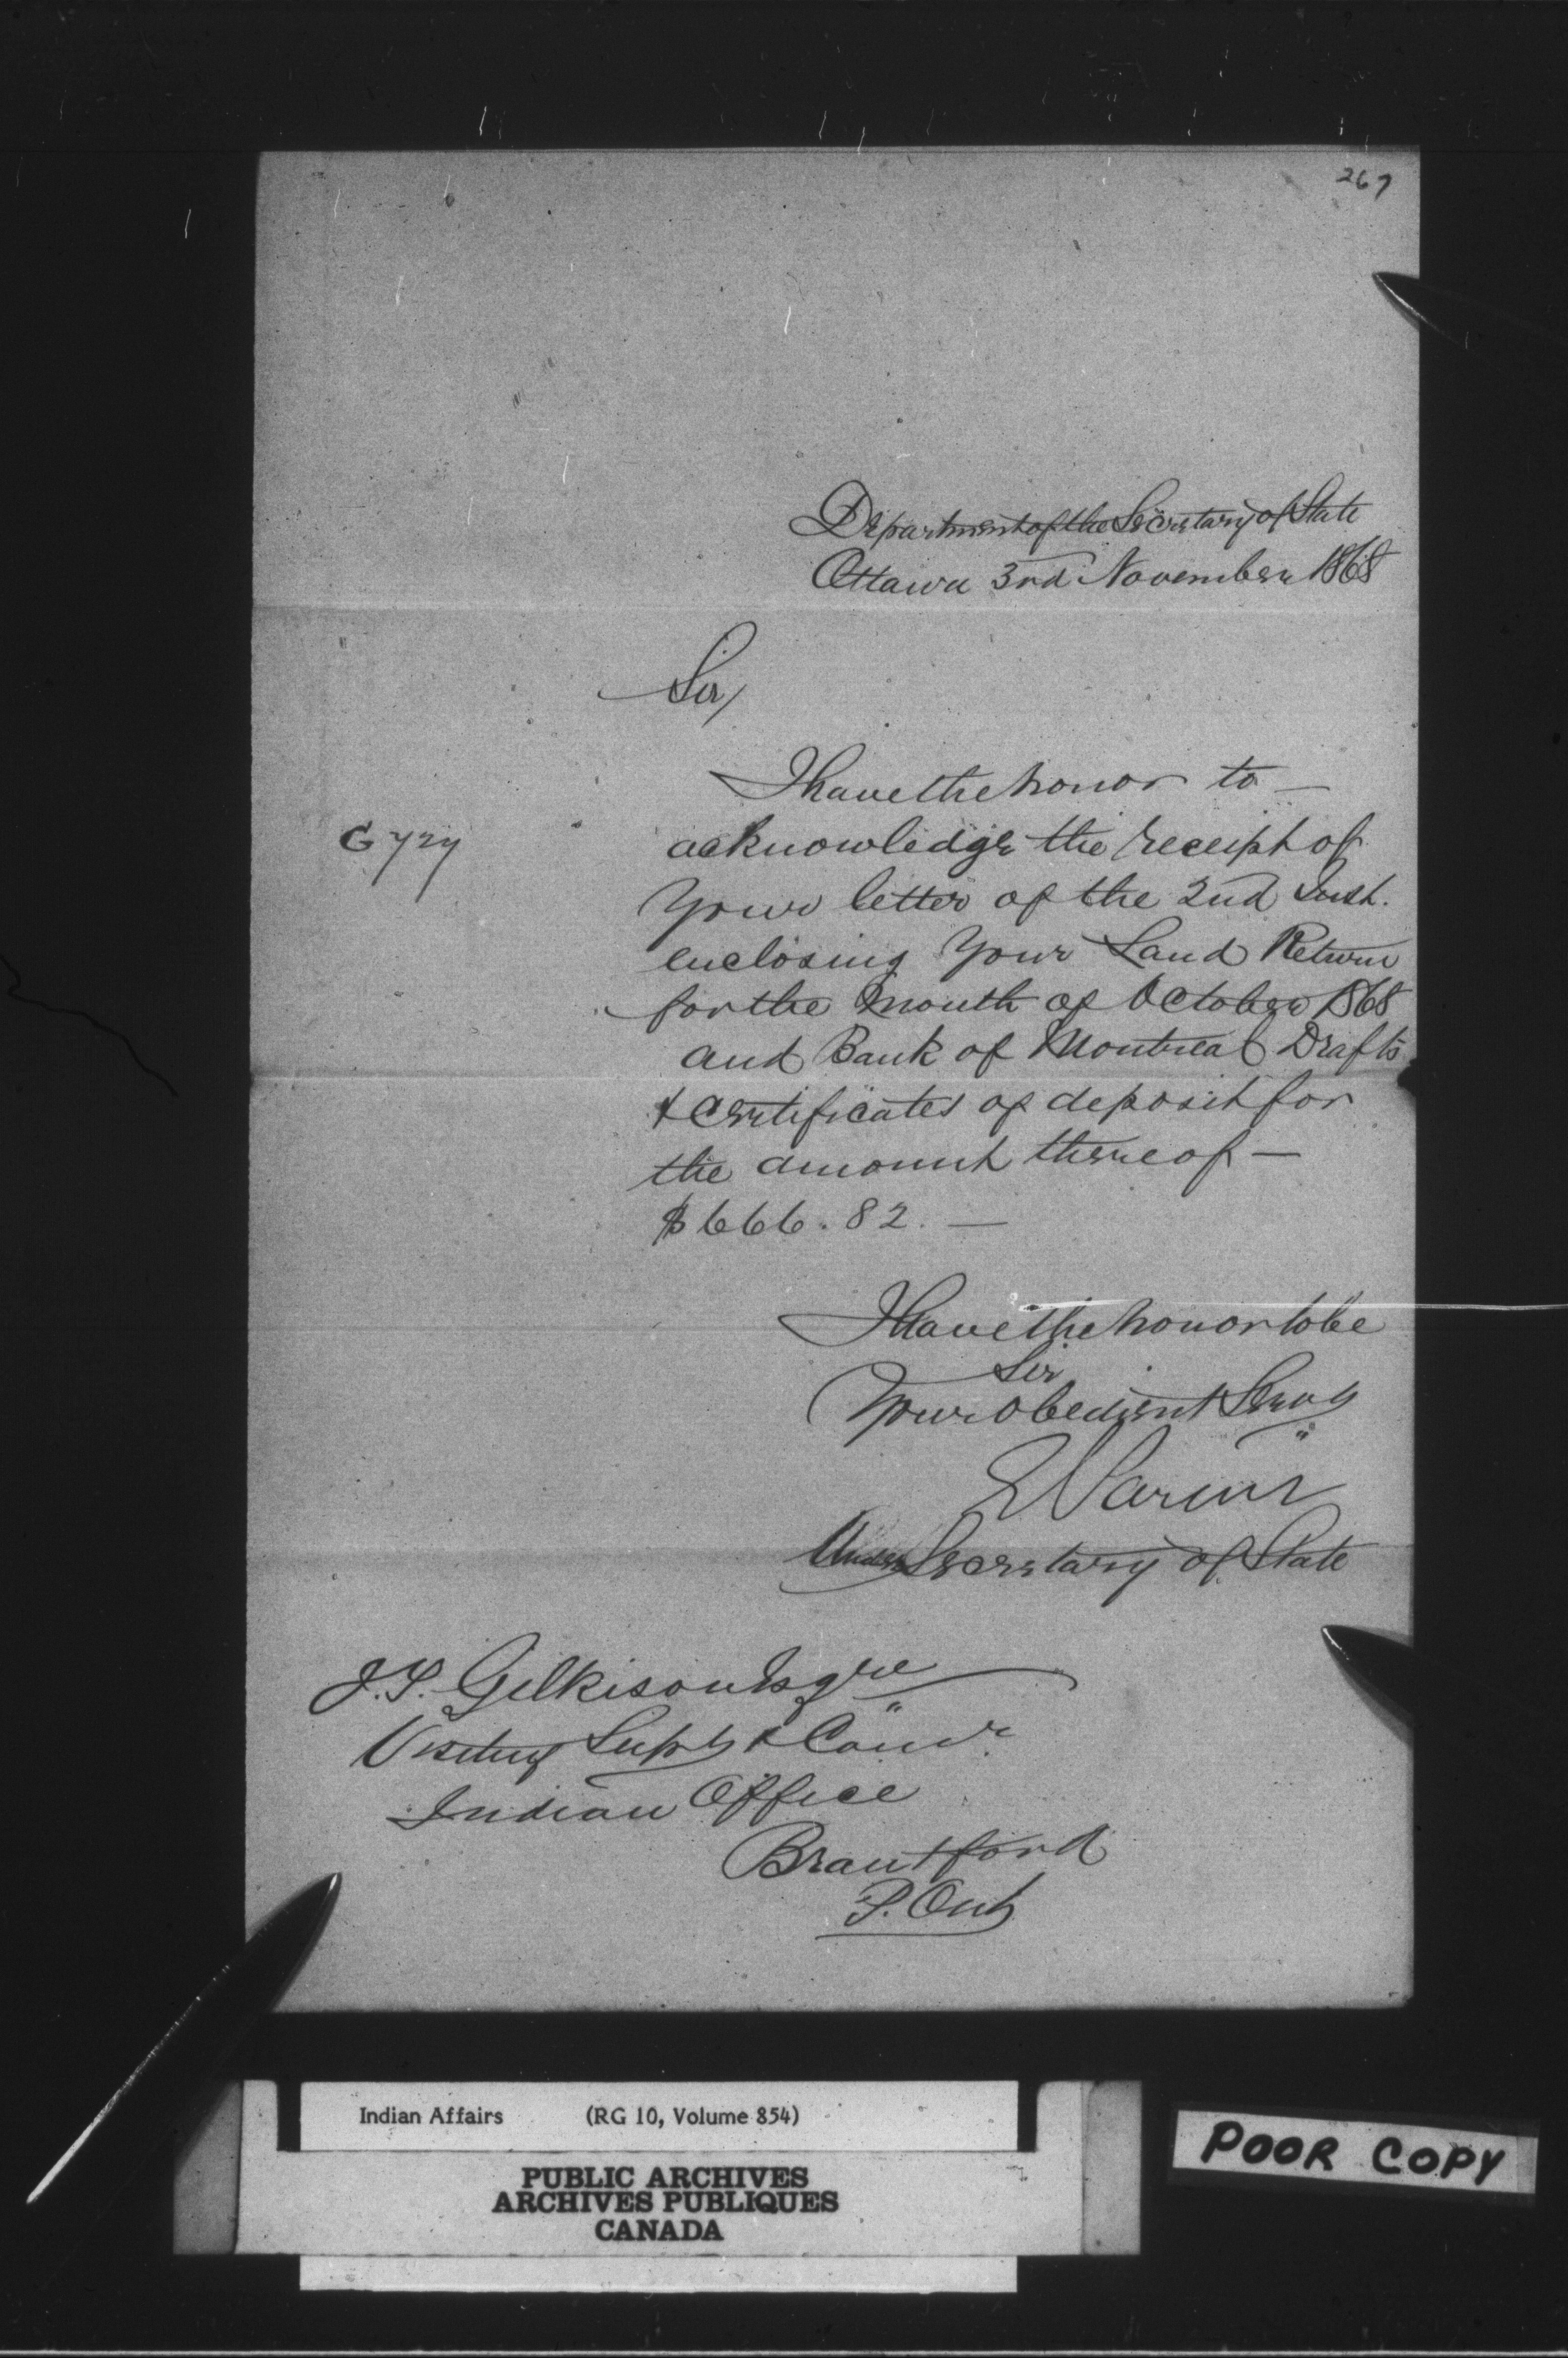 267
Department of the Secretary of State
Ottawa 3rd November 1868
Sir,
I have the honor to —
acknowledge the receipt of
your letter of the 2nd Inst.
enclosing your Land Return
for the month of October 1868
and Bank of Montreal Drafts
& certificates of deposit for
the amount thereof —
$666.82. —
I have the honor to be
Sir
Your obedient Servt
E Parent
Under Secretary of State
J.T. Gilkison Esqre
Visiting Supt & Comr
Indian Office
Brantford
P. Ont
Indian Affairs (RG 10, Volume 854)
PUBLIC ARCHIVES
ARCHIVES PUBLIQUES
CANADA
POOR COPY